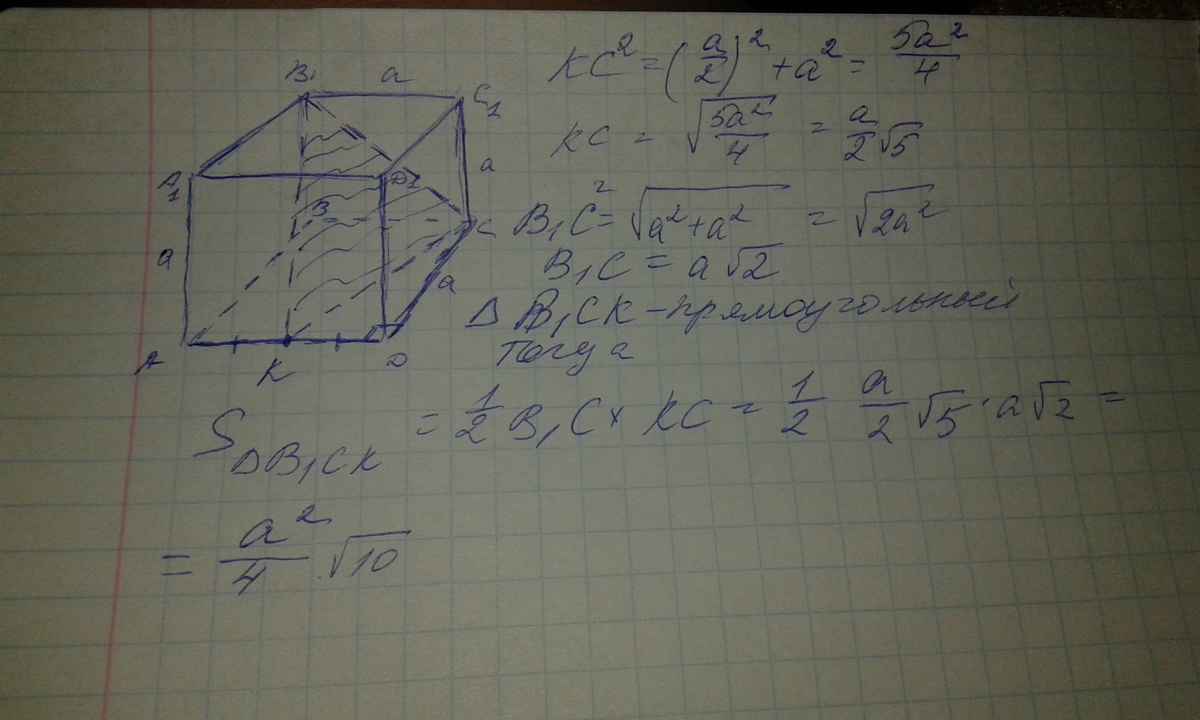 B₁ a C₁
A₁ D₁ a
a B C
a
A K D
KC² = (a/2)² + a² = 5a²/4
KC = √(5a²/4) = a/2 √5
B₁C² = √(a² + a²) = √(2a²)
B₁C = a√2
Δ B₁CK – прямоугольный
тогда
S ΔB₁CK = 1/2 B₁C × KC = 1/2 a/2 √5 · a√2 =
= a²/4 √10